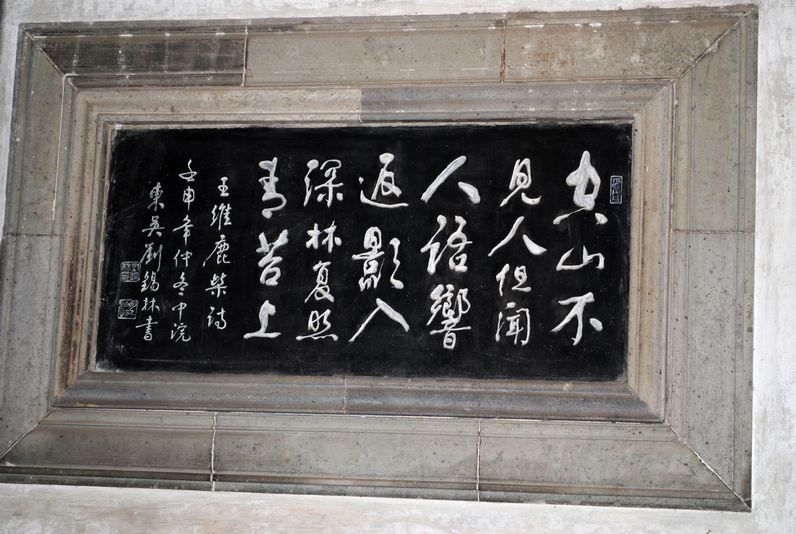 空山不
見人但聞
人語響
返影入
深林复照
青苔上
王維鹿柴詩
壬申年仲冬中浣
東吳劉錫林書